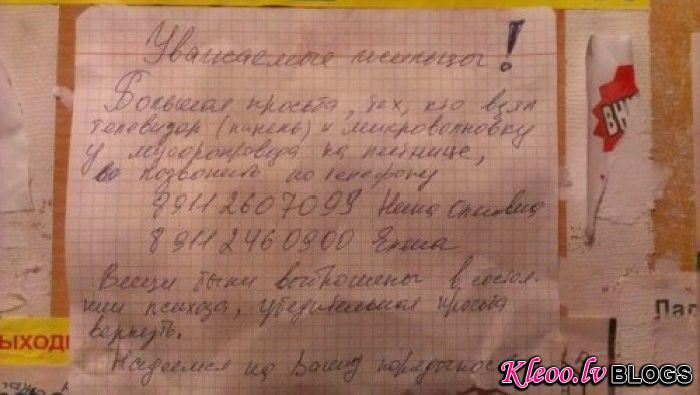 Уважаемые жильцы!
Большая просьба, тех, кто взял
телевизор (панель) и микроволновку
у мусоропровода на лестнице,
позвонить по телефону
89112607099 Нина
89112460900 Елена
Вещи были выброшены в состоя-
нии психоза, убедительная просьба
вернуть.
Надеемся на Вашу порядочность
ВН
ЫХОДИ
Пар
Kleoo.lv BLOGS